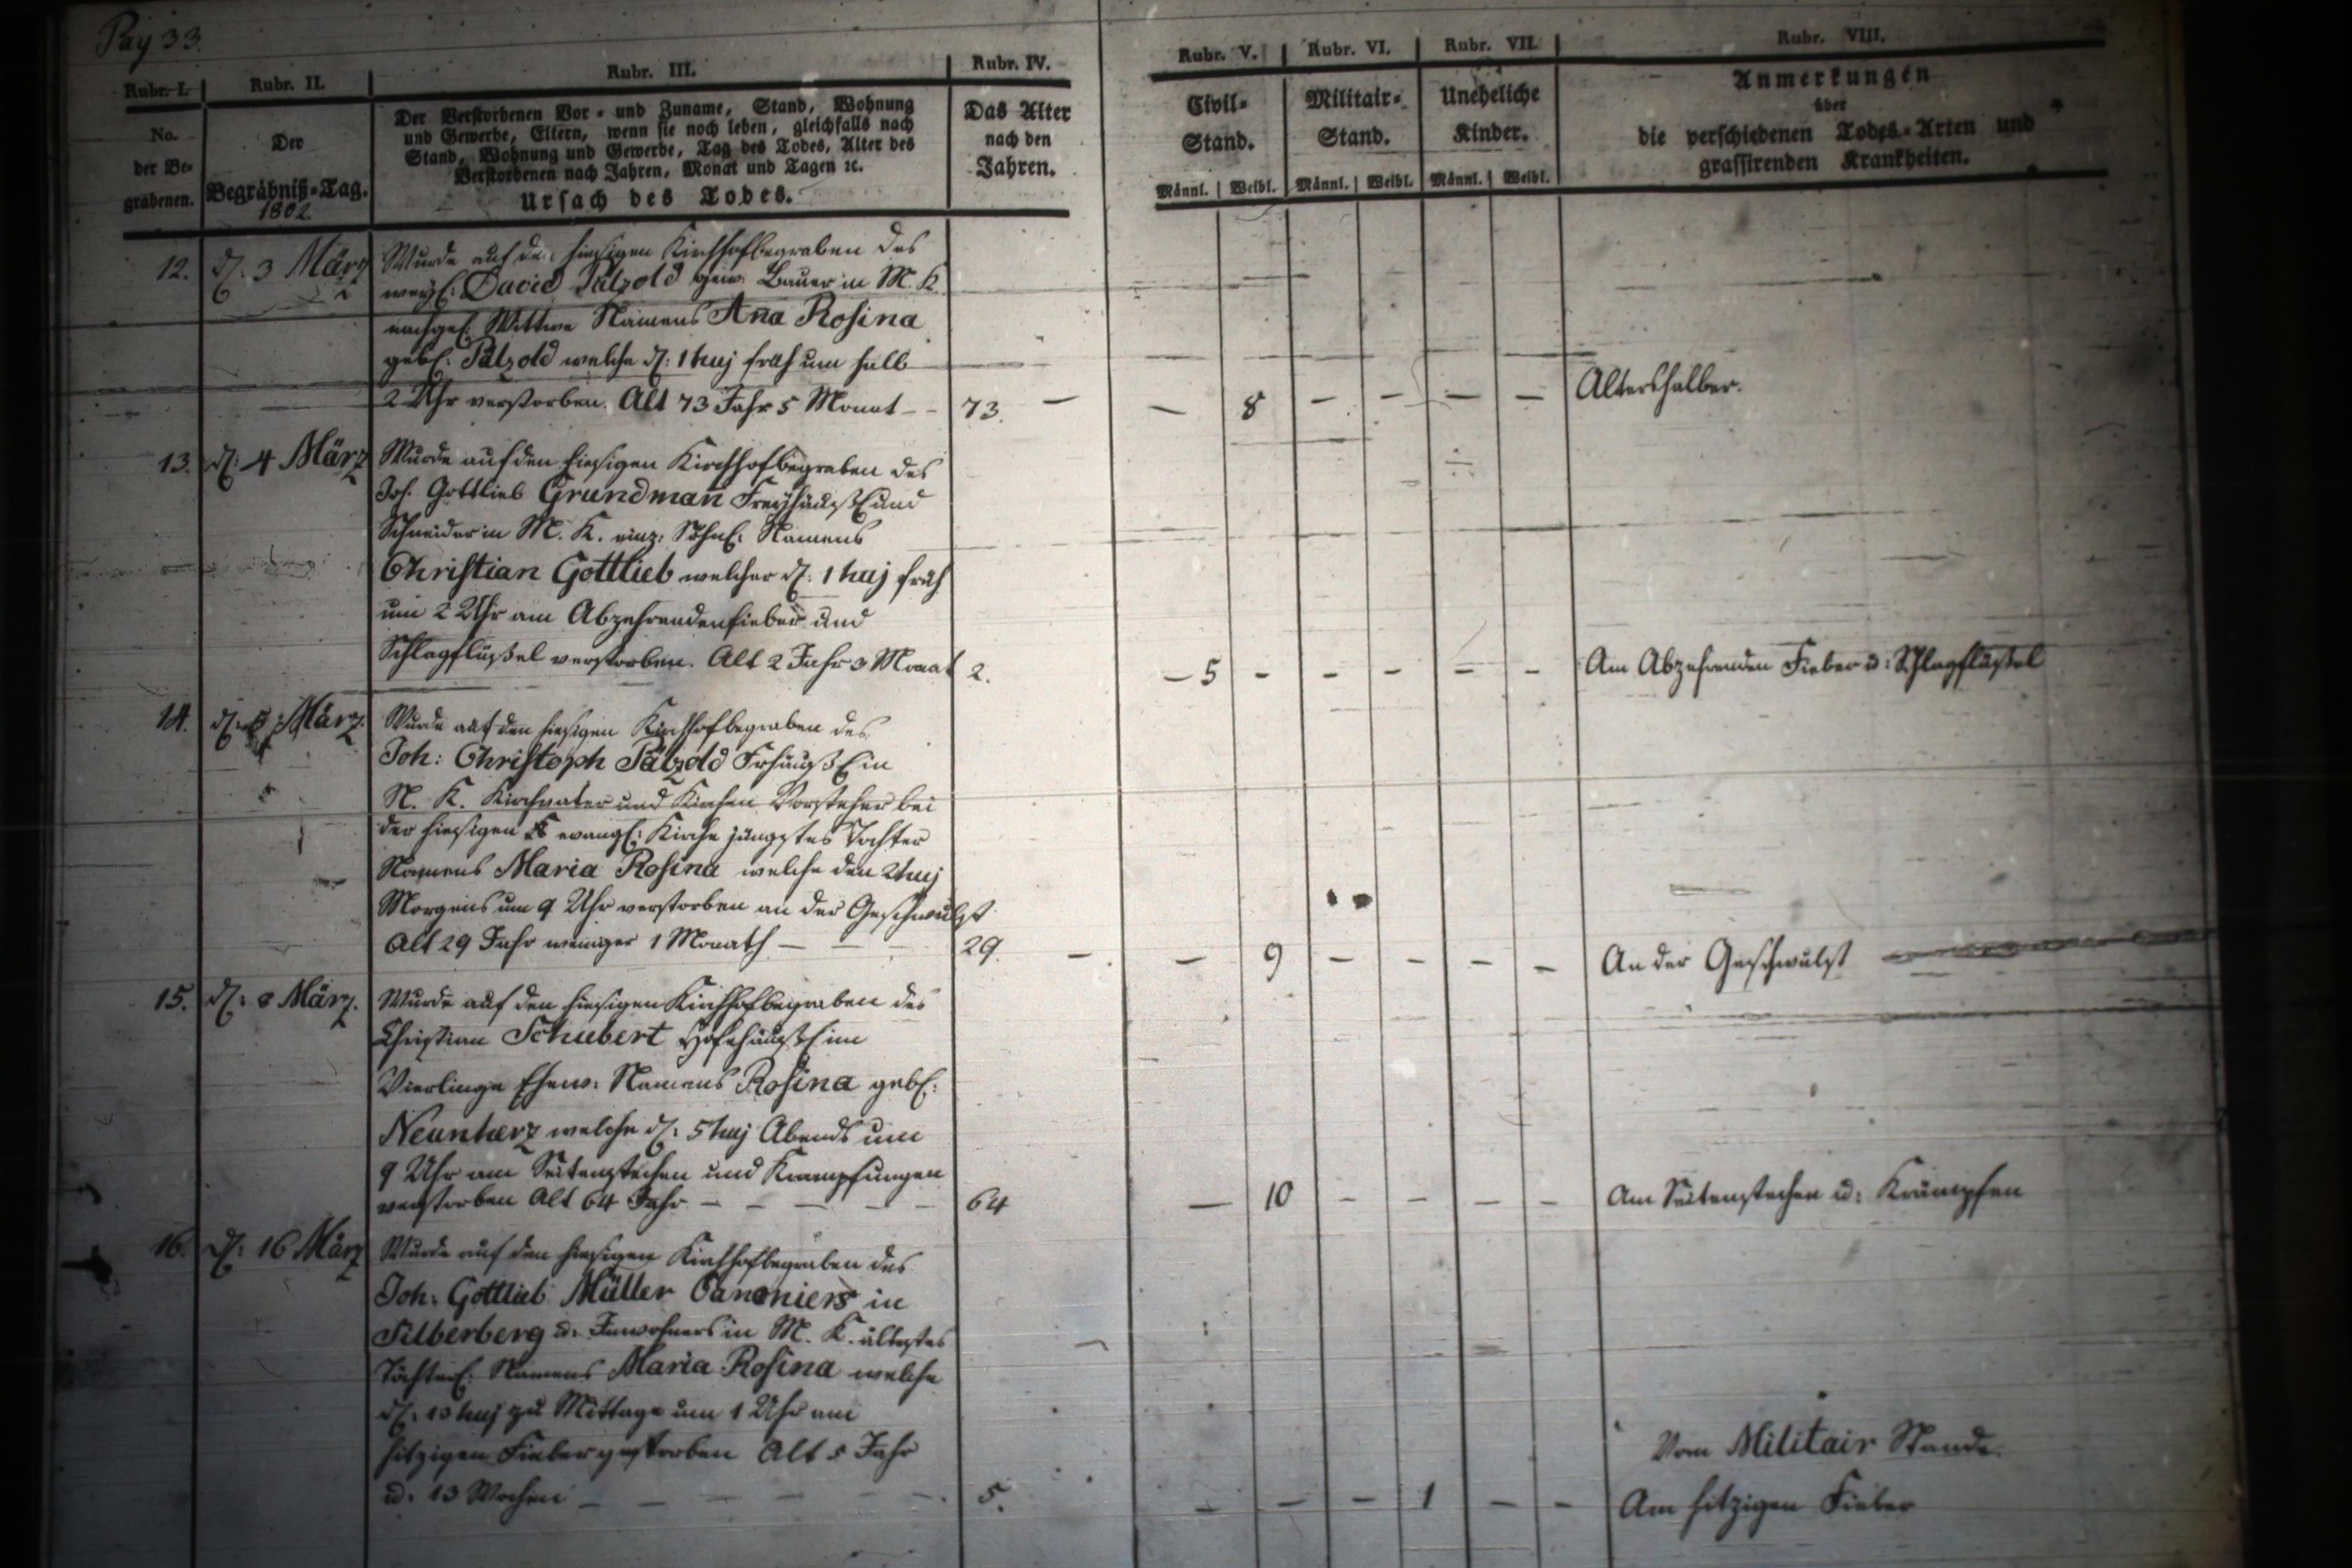 Pag 33.
Rubr. I.
No.
der Be-
grabenen.
Rubr. II.
Der
Begräbniß-Tag.
1802.
Rubr. III.
Der Verstorbenen Vor- und Zuname, Stand, Wohnung
und Gewerbe, Eltern, wenn sie noch leben, gleichfalls nach
Stand, Wohnung und Gewerbe, Tag des Todes, Alter des
Verstorbenen nach Jahren, Monat und Tagen ꝛc.
Ursach des Todes.
Rubr. IV.
Das Alter
nach den
Jahren.
Rubr. V.
Civil-
Stand.
Männl. Weibl.
Rubr. VI.
Militair-
Stand.
Männl. Weibl.
Rubr. VII.
Uneheliche
Kinder.
Männl. Weibl.
Rubr. VIII.
Anmerkungen
über
die verschiedenen Todes-Arten und
grassirenden Krankheiten.
12. d. 3 März
Wurde auf den hiesigen Kirchhof begraben des
weyl: David Pätzold gew. Bauer in M. K.
nachgel. Wittwe Namens Aña Rosina
gebl: Pätzold welche d: 1 huj früh um halb
2 Uhr verstorben. Alt 73 Jahr 5 Monat – – 73. — — 8 – – – – Altershalber.
13. d: 4 März
Wurde auf den hiesigen Kirchhof begraben des
Joh. Gottlieb Grundmañ Freyhäußl und
Schneider in M. K. einz: Söhnl: Namens
Christian Gottlieb welcher d: 1 huj früh
um 2 Uhr am Abzehrendenfieber und
Schlagflüßel verstorben. Alt 2 Jahr 3 Monat 2. – 5 – – – – – Am Abzehrenden Fieber u: Schlagflüßel
14. d: März.
Wurde auf den hiesigen Kirchhof begraben des
Joh: Christoph Pätzold Frhäußl in
N. K. Kirchvater und Kirchen Vorsteher bei
der hiesigen evangl: Kirche jüngstes Tochter
Namens Maria Rosina welche den 2 huj
Morgens um 9 Uhr verstorben an der Geschwulst
Alt 29 Jahr weniger 1 Monath — 29. – – 9 – – – – An der Geschwulst
15. d: 8 März.
Wurde auf den hiesigen Kirchhof begraben des
Christian Schubert Hofehäußl im
Vierlinge Ehew: Namens Rosina gebl:
Neunherz welche d: 5 huj Abends um
9 Uhr am Seitenstechen und Krampfungen
verstorben Alt 64 Jahr – – – – – 64 — 10 – – – – Am Seitenstechen u: Krämpfen
16. d: 16 März
Wurde auf den hiesigen Kirchhof begraben des
Joh: Gottlieb Müller Canoniers in
Silberberg u: Inwohners in M. K. ältestes
Töchterl: Namens Maria Rosina welche
d: 13 huj zu Mittage um 1 Uhr am
hitzigen Fieber gestorben Alt 5 Jahr
u. 13 Wochen – – – – – – 5. – – – 1 – –
Vom Militair Stande.
Am hitzigen Fieber